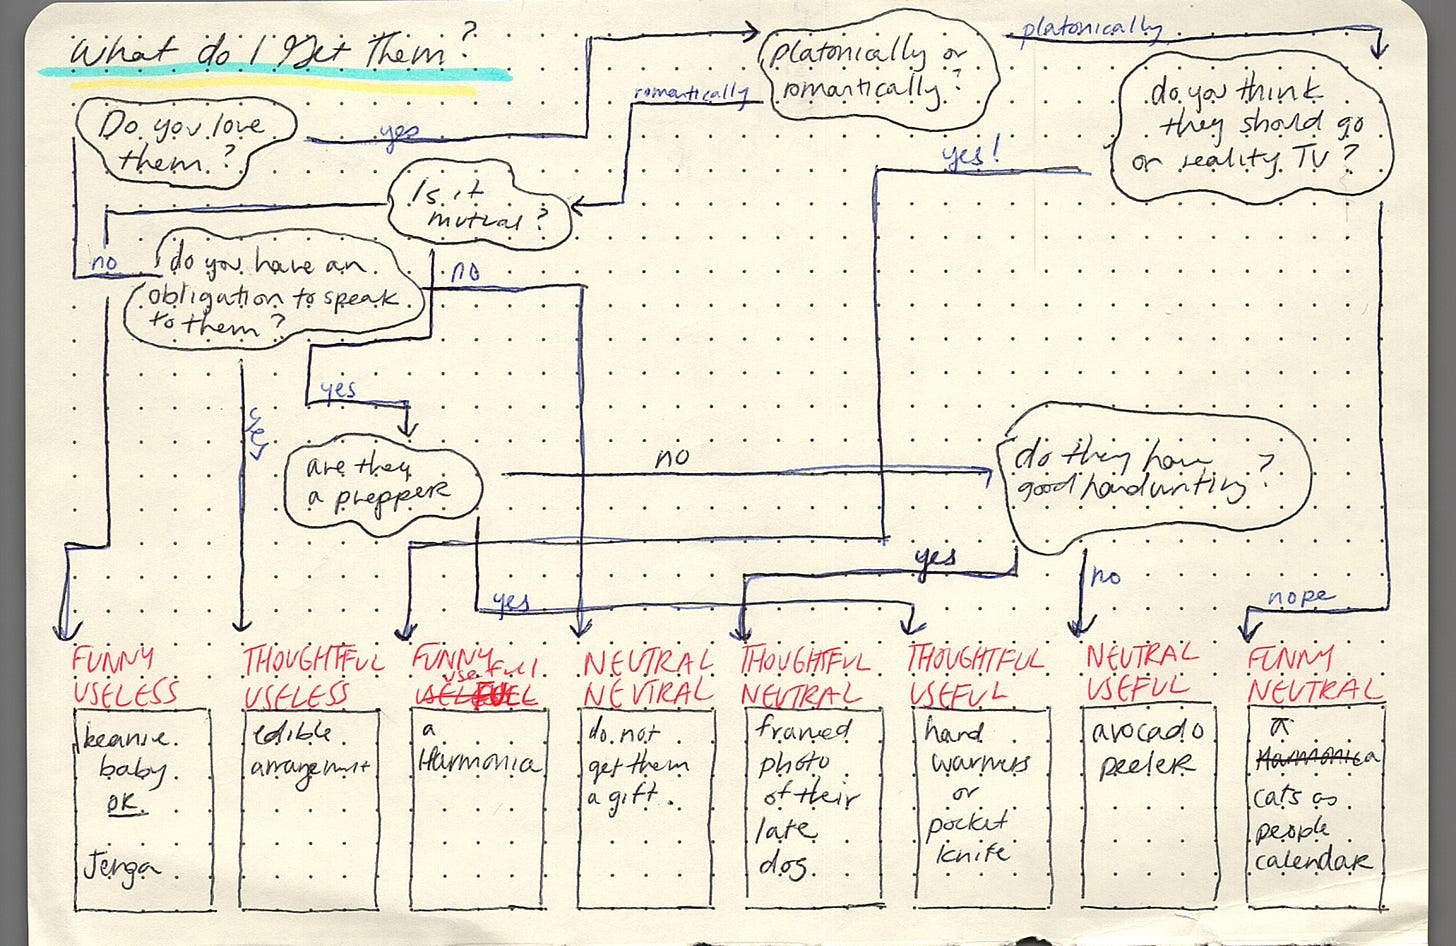 What do I Get Them?
Do you love
them?
yes
platonically or
romantically?
platonically
romantically
do you think
they should go
on reality TV?
yes!
Is it
mutual?
no
do you have an
obligation to speak
to them?
no
yes
yes
are they
a prepper
no
do they have
good handwriting?
yes
yes
no
nope
FUNNY
USELESS
beanie
baby
OR
Jenga
THOUGHTFUL
USELESS
edible
arrangement
FUNNY
usefull
a
Harmonia
NEUTRAL
NEUTRAL
do not
get them
a gift.
THOUGHTFUL
NEUTRAL
framed
photo
of their
late
dog
THOUGHTFUL
USEFUL
hand
warmers
or
pocket
knife
NEUTRAL
USEFUL
avocado
peeler
FUNNY
NEUTRAL
a
Harmonica
cats as
people
calendar